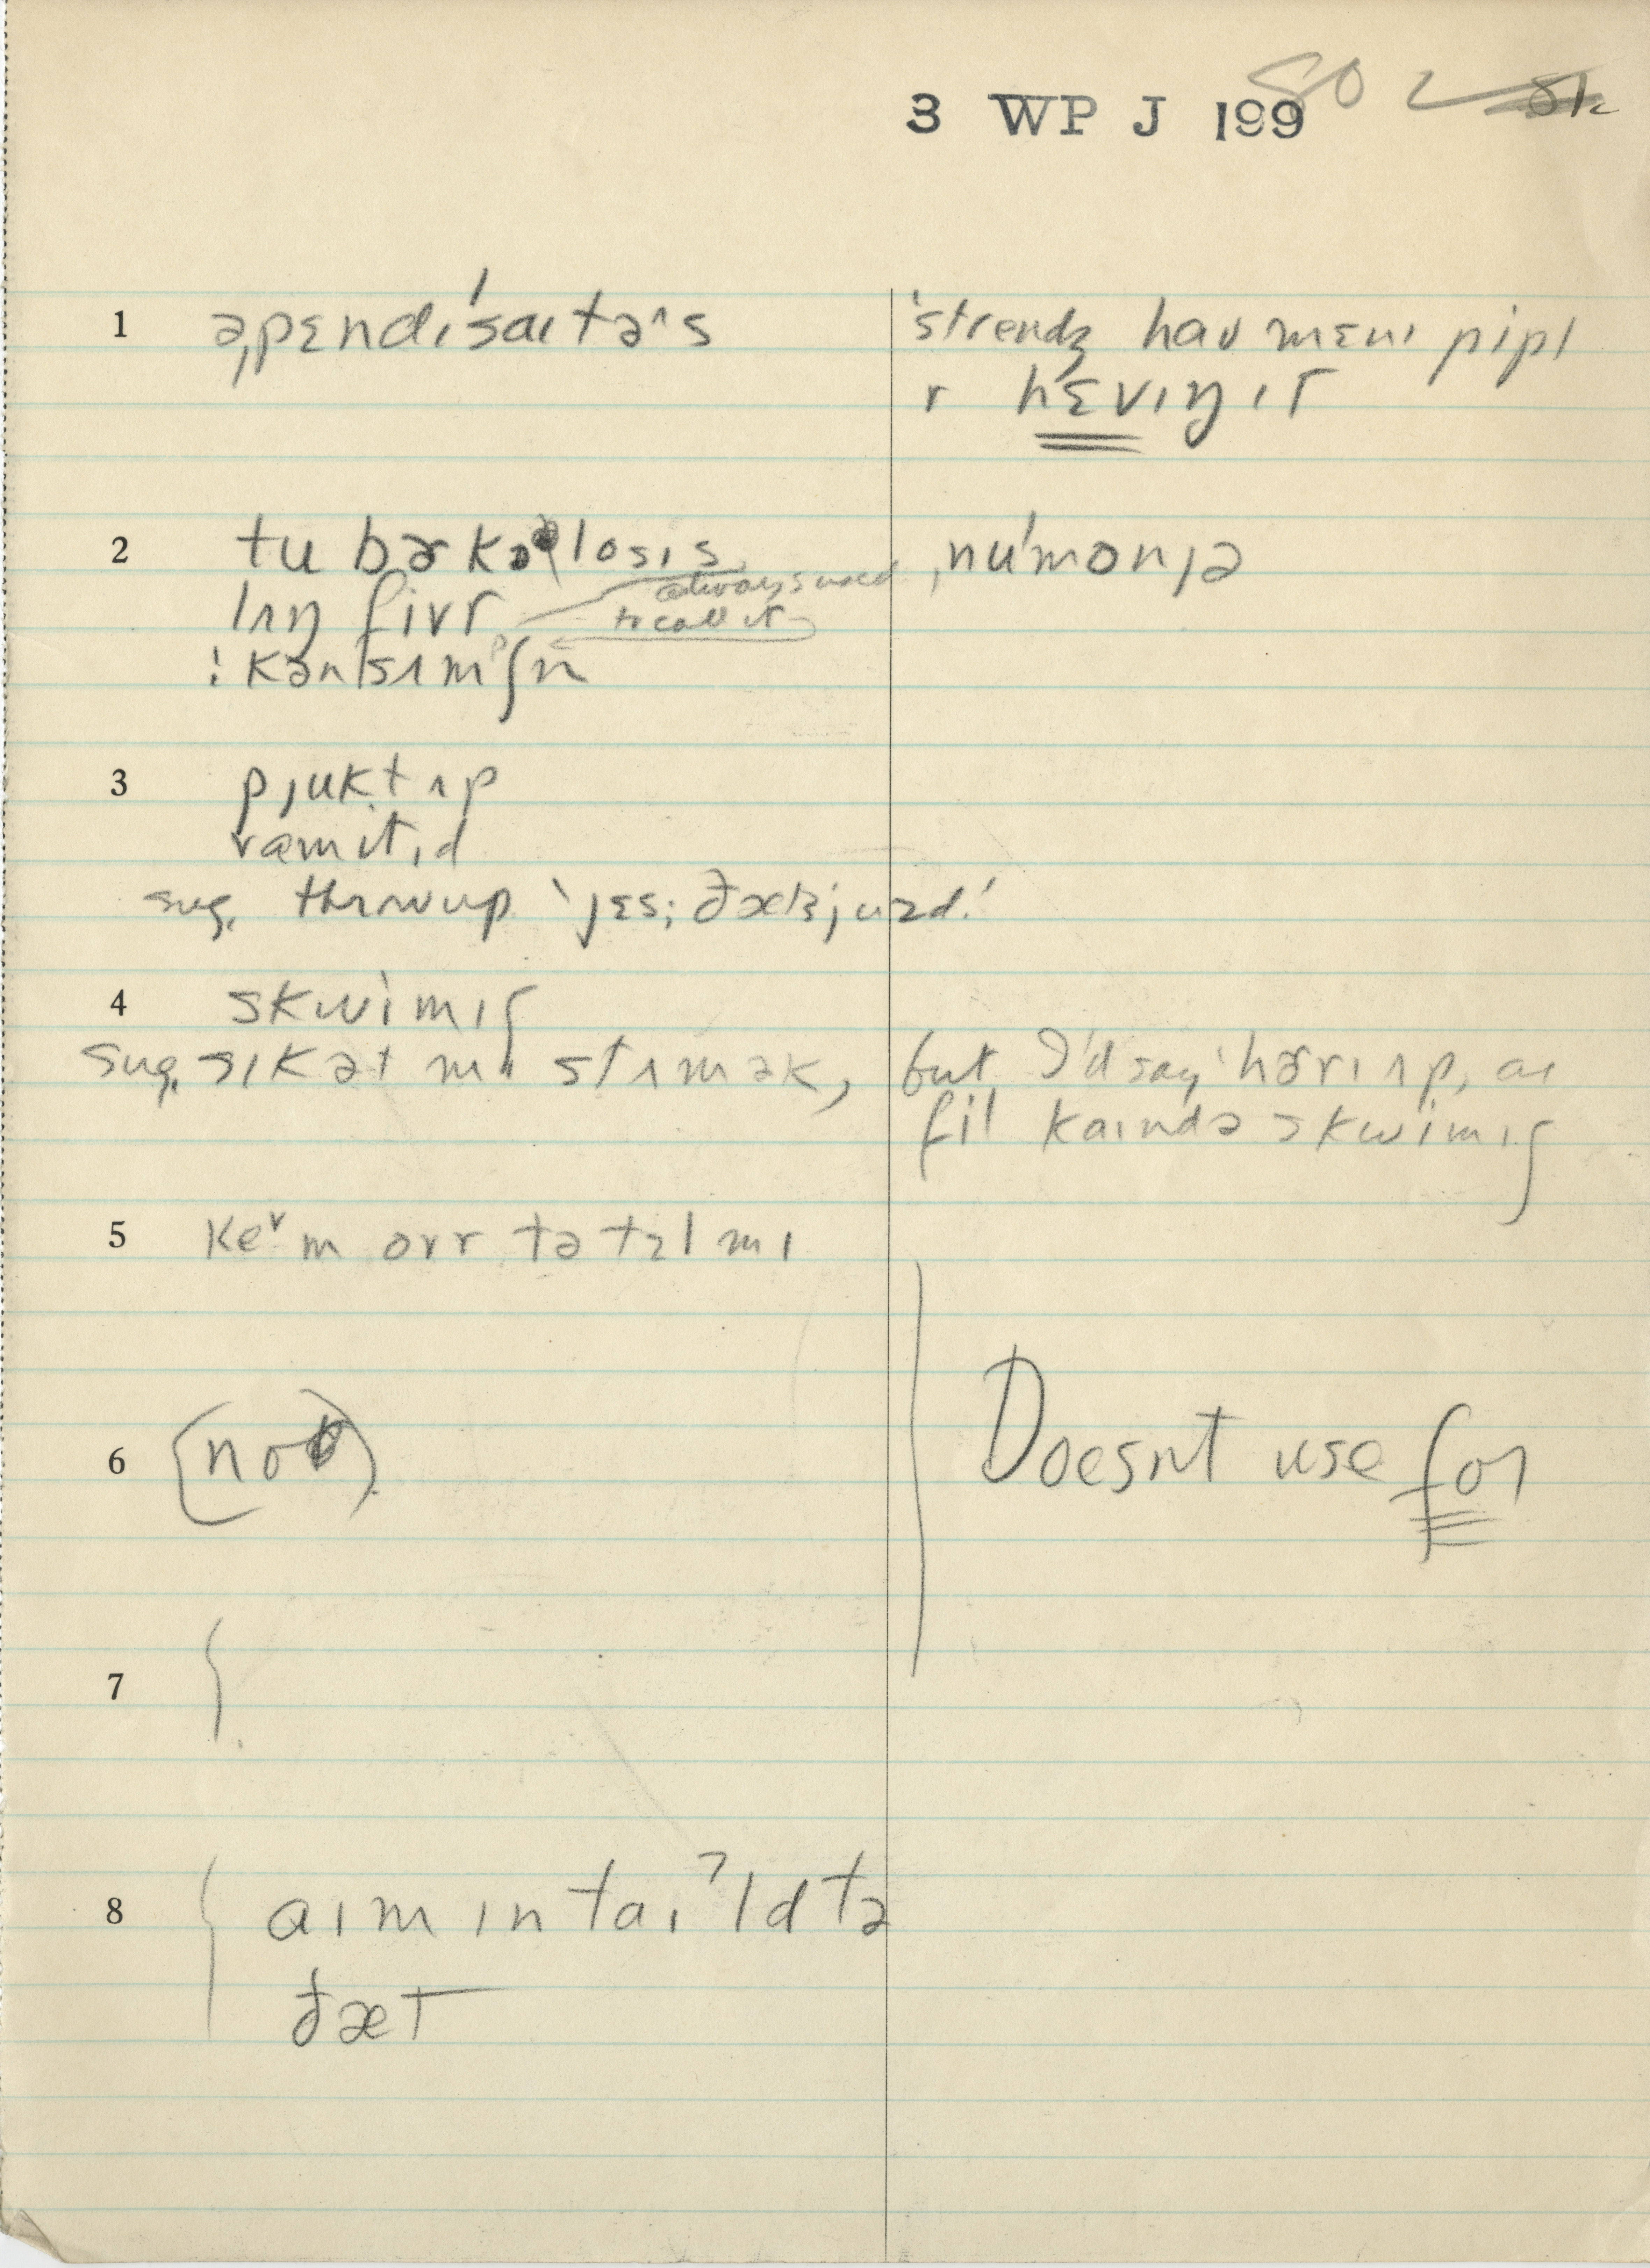 3 WP J 199 80 2
1 ə,pɛndɪ'saɪtəˆs 'strendʒ haʊ mɛnɪ pipl
r hɛvɪŋ ɪt
2 tu bɚkələosɪs ,nu'monjə
always used
lʌŋ fivr to call it
! kənsʌmpʃn
3 pjukt ʌp
vamɪtɪd
sug. throw up 'jɛs; ðætsjuzd.'
4 skwimɪʃ
sug. sɪk ət mɪ stʌmək, but I'd say 'hɚrɪ ʌp, aɪ
fil kaɪndə skwimɪʃ
5 keˇm ovr tə tɛl mɪ
6 (not) Doesnt use for
7
8 aɪm ɪntaɪˀld tə
ðæt